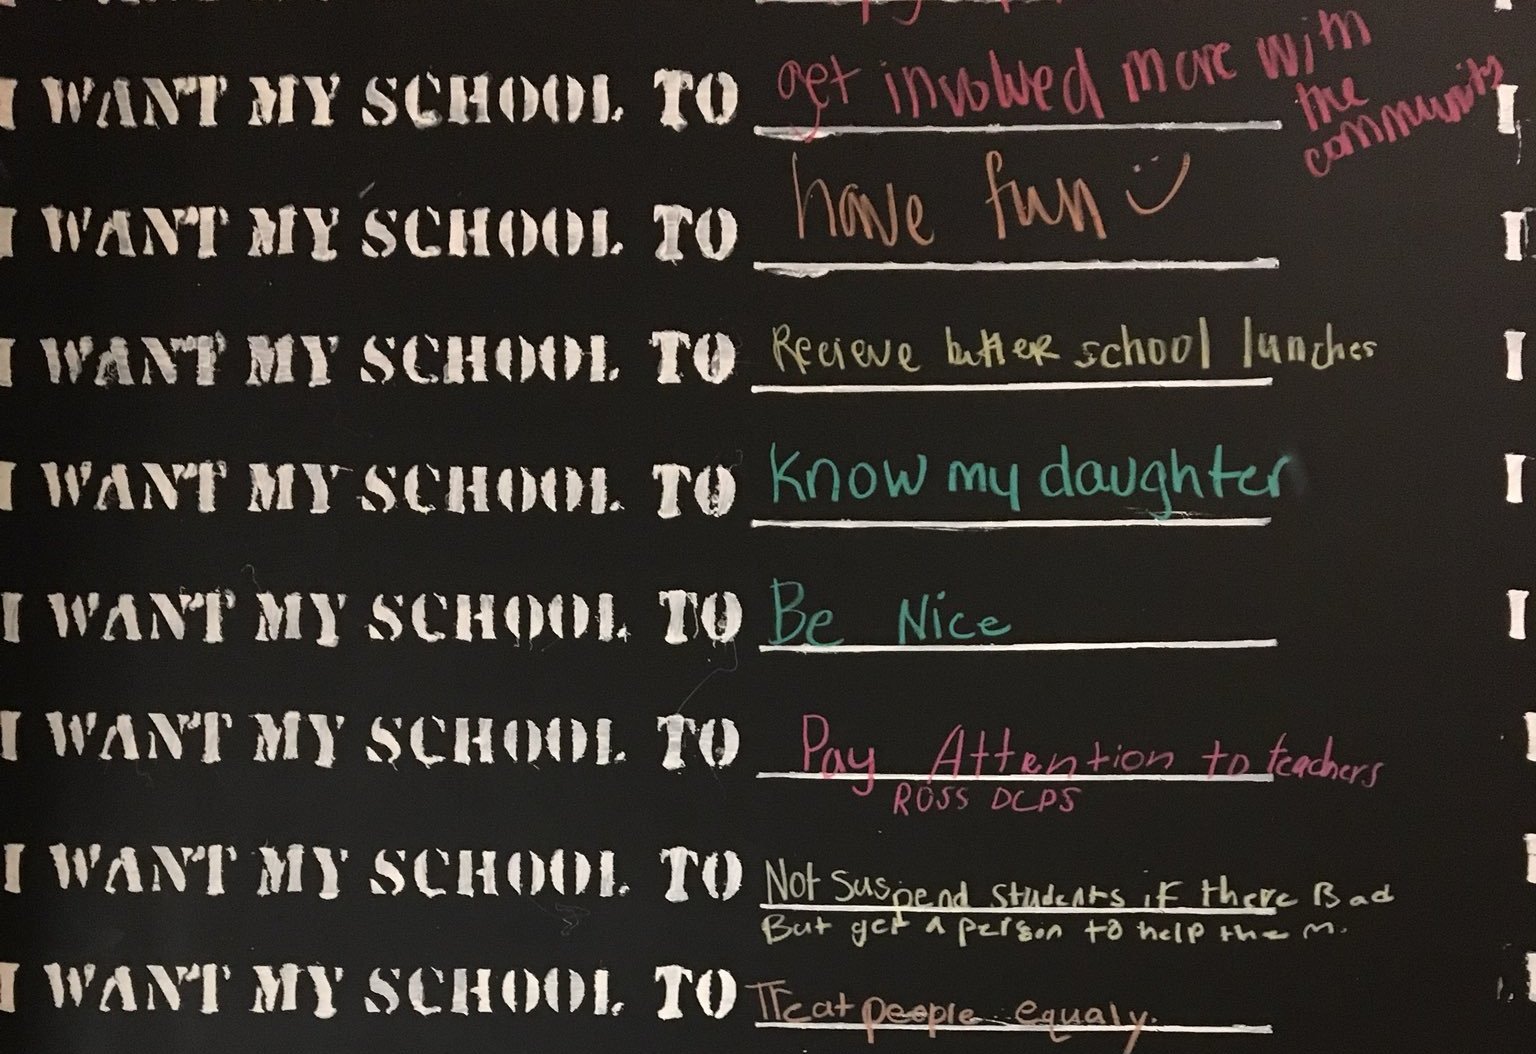 I WANT MY SCHOOL TO get involved more with
the
community
I WANT MY SCHOOL TO have fun :)
I WANT MY SCHOOL TO Recieve better school lunches
I WANT MY SCHOOL TO Know my daughter
I WANT MY SCHOOL TO Be Nice
I WANT MY SCHOOL TO Pay Attention to teachers
ROSS DCPS
I WANT MY SCHOOL TO Not Suspend Students if there Bad
But get a person to help them.
I WANT MY SCHOOL TO Treat people equaly.